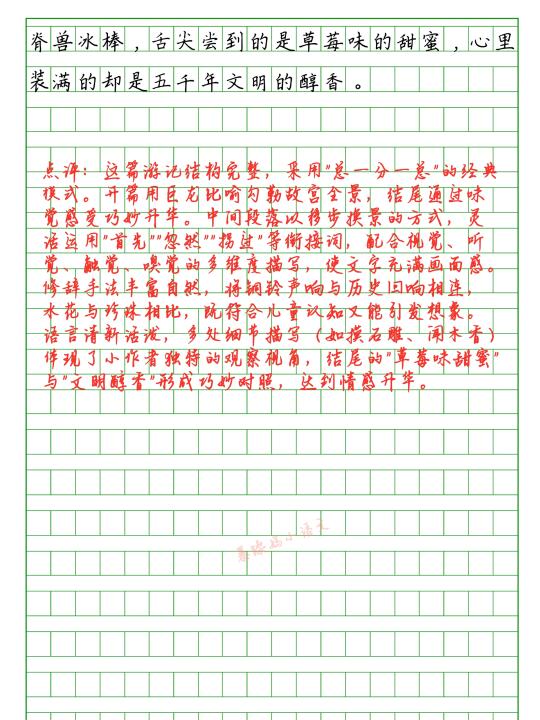 脊兽冰棒，舌尖尝到的是草莓味的甜蜜，心里
装满的却是五千年文明的醇香。
点评：这篇游记结构完整，采用"总一分一总"的经典
模式。开篇用巨龙比喻勾勒故宫全景，结尾通过味
觉感受巧妙升华。中间段落以移步换景的方式，灵
活运用"首先""忽然""拐过"等衔接词，配合视觉、听
觉、触觉、嗅觉的多维度描写，使文字充满画面感。
修辞手法丰富自然，将铜铃声响与历史回响相连，
水花与珍珠相比，既符合儿童认知又能引发想象。
语言清新活泼，多处细节描写（如摸石雕、闻木香）
体现了小作者独特的观察视角，结尾的"草莓味甜蜜"
与"文明醇香"形成巧妙对照，达到情感升华。
妈小语文